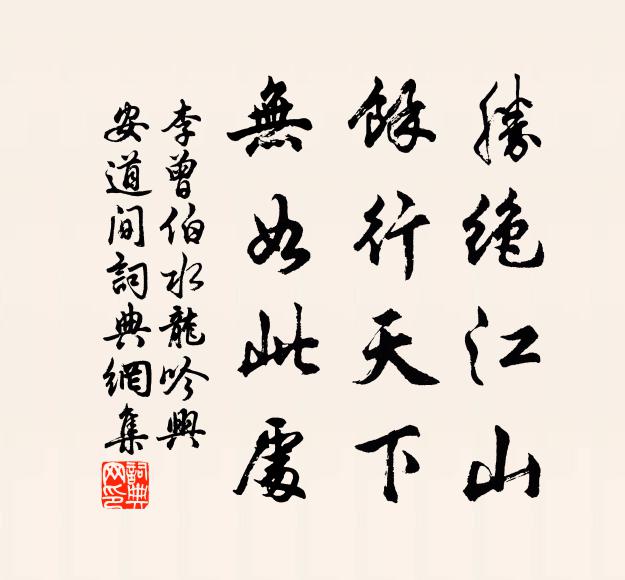 勝絶江山
餘行天下
無如此處
李曾伯水龍吟興
安道间詞典網集
詞典
网印